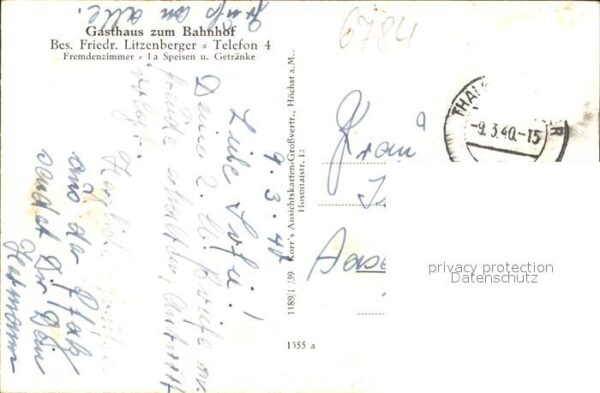 Gruß an alle.
Gasthaus zum Bahnhof
Bes. Friedr. Litzenberger - Telefon 4
Fremdenzimmer - Ia Speisen u. Getränke
9.3.40
Liebe
Deine 2 lb. Briefe m.
Freude erhalten, Antwort
folgt. Herzliche
aus der Pfalz
sendet Dir Dein
Hermann
1189/1 39 Korr's Ansichtskarten-Großvertr., Höchst a.M.,
Hospitalstr. 15
1355 a
6784
-9.3.40.-15
Frau
privacy protection
Datenschutz